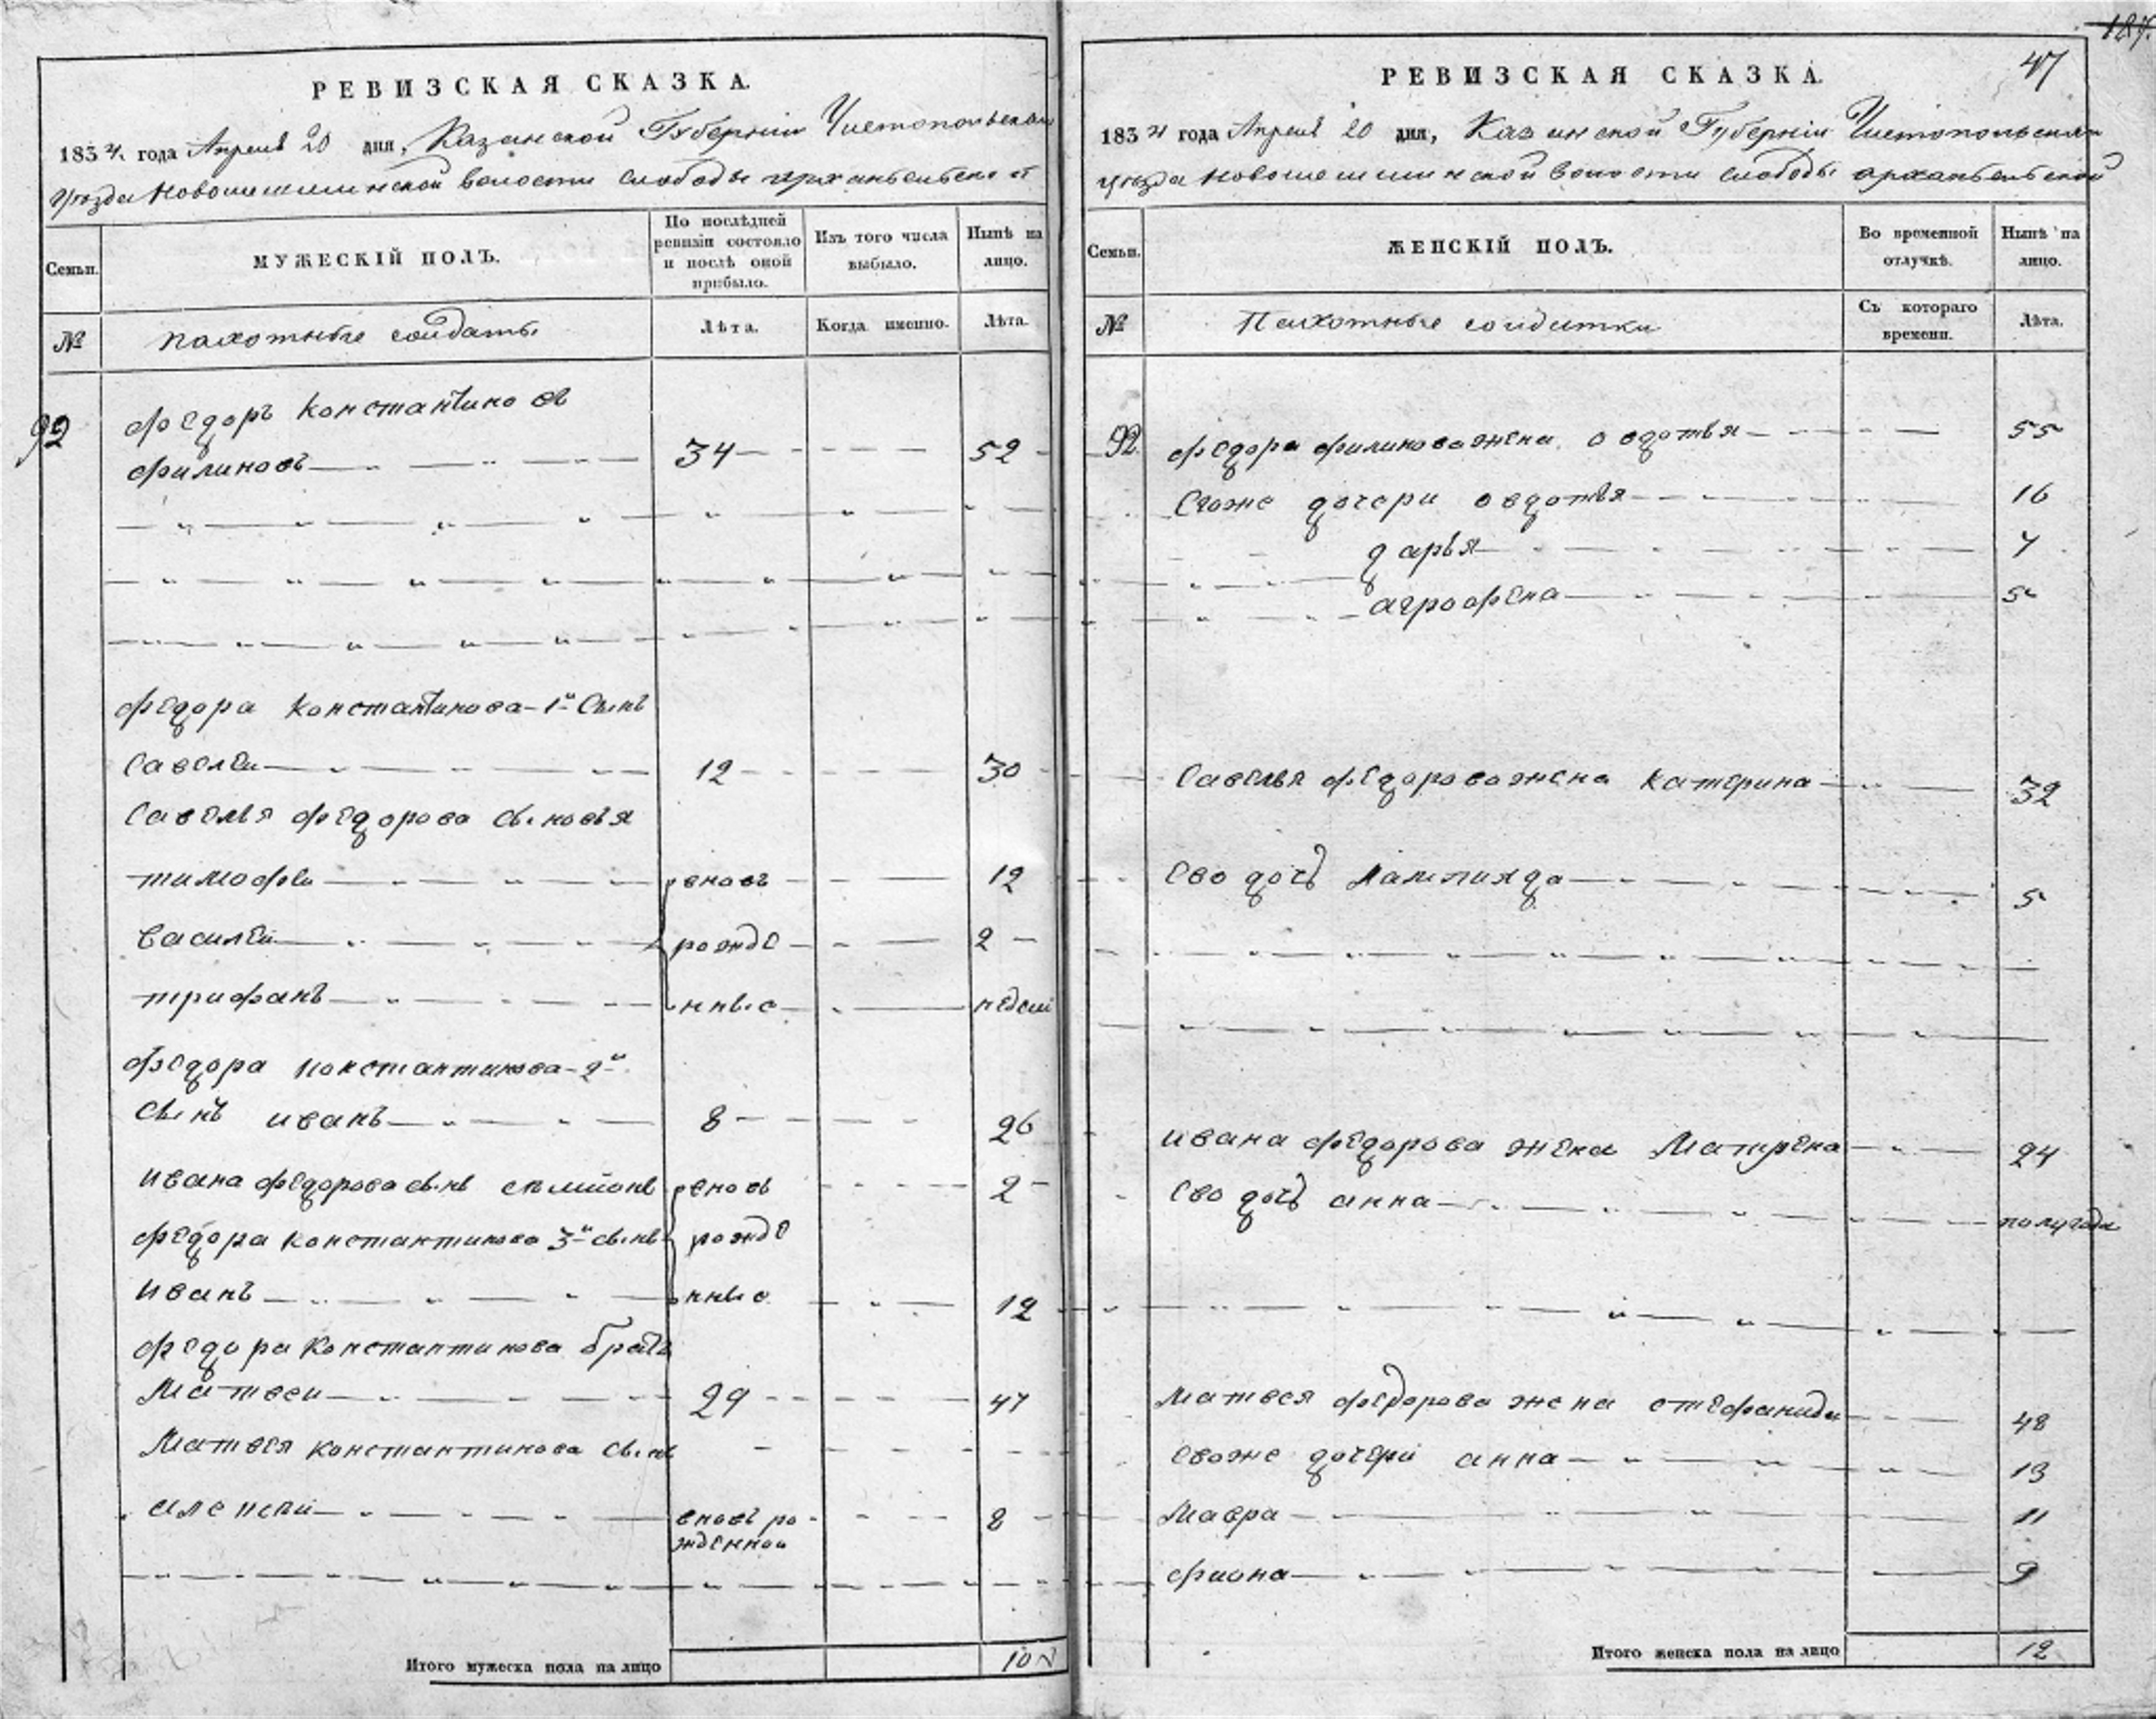 РЕВИЗСКАЯ СКАЗКА.
1834 года Апреля 20 дня, Казанской Губерніи Чистопольскаго
уезда Новошешминской волости слободы архангельской
Семьи.
МУЖЕСКІЙ ПОЛЪ.
По послѣдней ревизіи состояло и послѣ оной прибыло.
Изъ того числа выбыло.
Нынѣ на лицо.
№
пахотные солдаты
Лѣта.
Когда именно.
Лѣта.
92
федоръ константиновъ
филиновъ 34 52
федора константинова 1й сынъ
савелеи 12 30
савелья федорова сыновья
тимофеи вновь 12
василеи рожде 2
трифанъ нные недели
федора константинова 2й
сынъ иванъ 8 26
ивана федорова сынъ вновь 2
федора константинова 3й сынъ рожде
иванъ нные 12
федора константинова братъ
матвеи 29 47
матвея константинова сынъ
алексеи вновь ро 8
жденнои
Итого мужеска пола на лицо 10
187.
47
РЕВИЗСКАЯ СКАЗКА.
1834 года Апреля 20 дня, Казанской Губерніи Чистопольскаго
уезда новошешминской волости слободы архангельской
Семьи.
ЖЕНСКІЙ ПОЛЪ.
Во временной отлучкѣ.
Нынѣ на лицо.
№
Пахотные солдатки
Съ котораго времени.
Лѣта.
92 федора филинова жена овдотья 55
Егоже дочери овдотья 16
дарья 7
агрофена 5
савелья федорова жена катерина 32
Ево дочь 5
ивана федорова жена Матрена 24
Ево дочь анна полугода
матвея федорова жена стефанида 48
Евоже дочери анна 13
Мавра 11
фиона 9
Итого женска пола на лицо 12